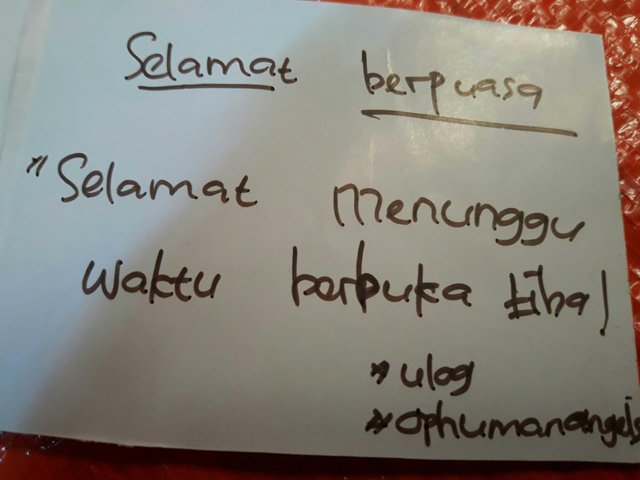 Selamat berpuasa
"Selamat menunggu
waktu berbuka tiba!
"ulog
"ophumanangels